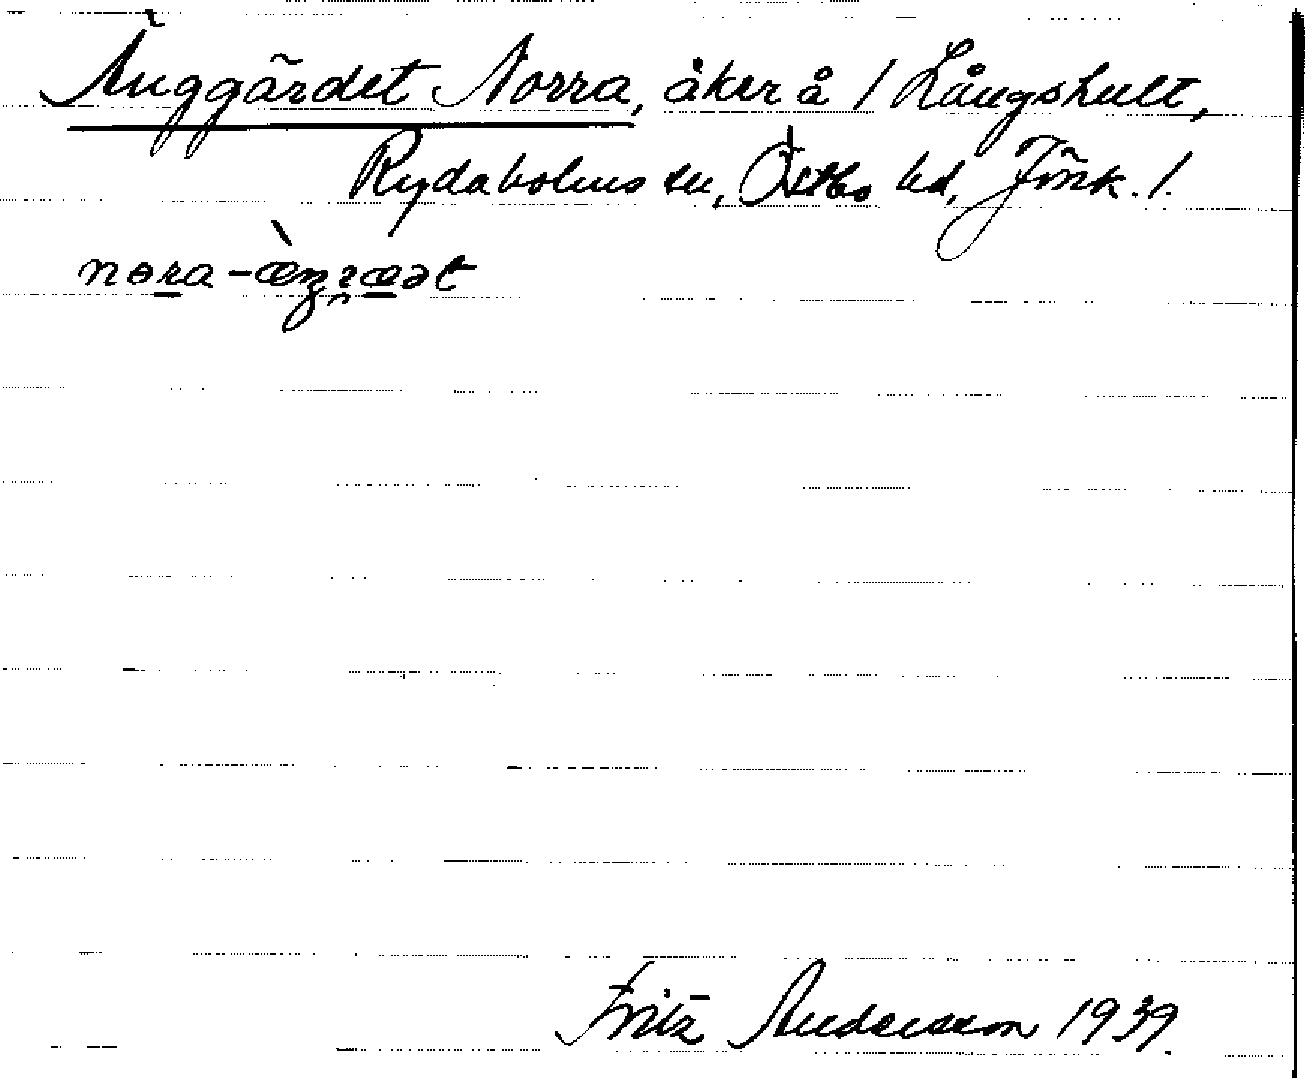 Änggärdet Norra, åker å 1 Långshult,
Rydaholms sn, Östbo hd, Jönk. l.
nɵra-æ̀ŋɽæət
Fritz Andersson 1939.